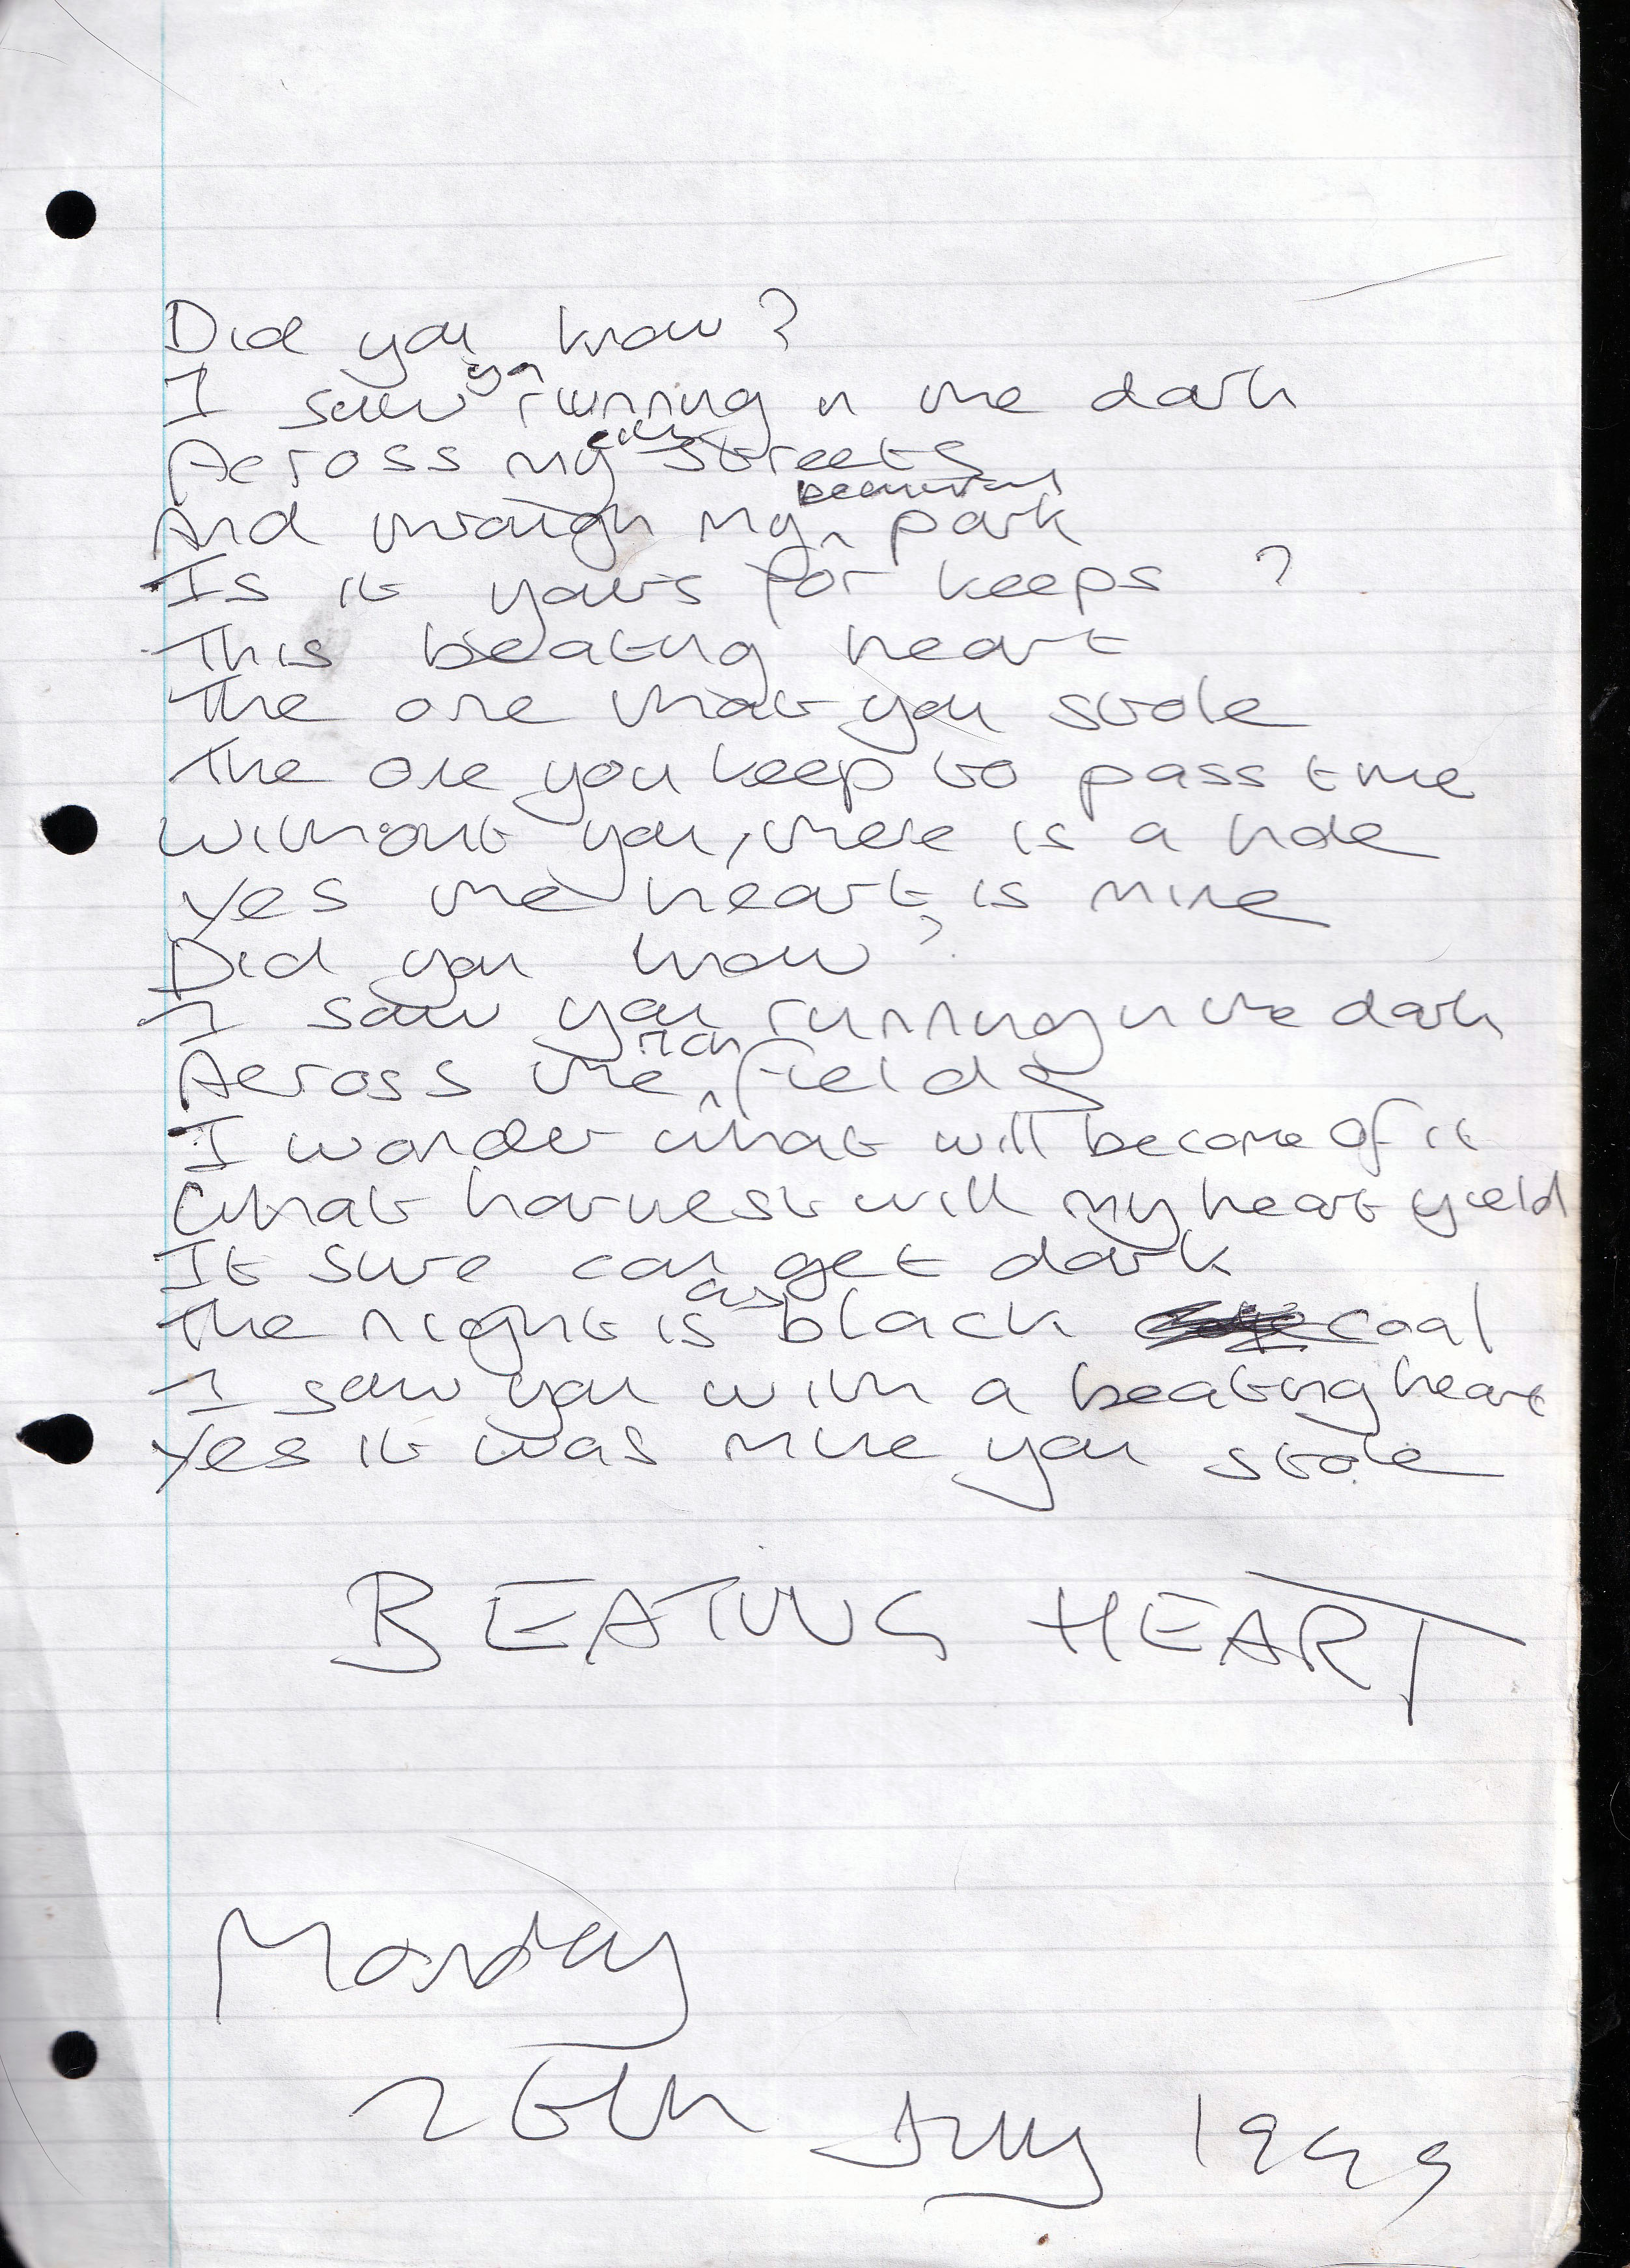 Did you know?
I saw you running in the dark
Across my streets
And through my beautiful park
Is it yours for keeps?
This beating heart
The one that you stole
The one you keep to pass time
Without you, there is a hole
Yes the heart is mine
Did you know?
I saw you running in the dark
Across the rich fields
I wonder what will become of it
What harvest will my heart yield
It sure can get dark
The night is as black coal
I saw you with a beating heart
Yes it was mine you stole
BEATING HEART
Monday
26th July 1999